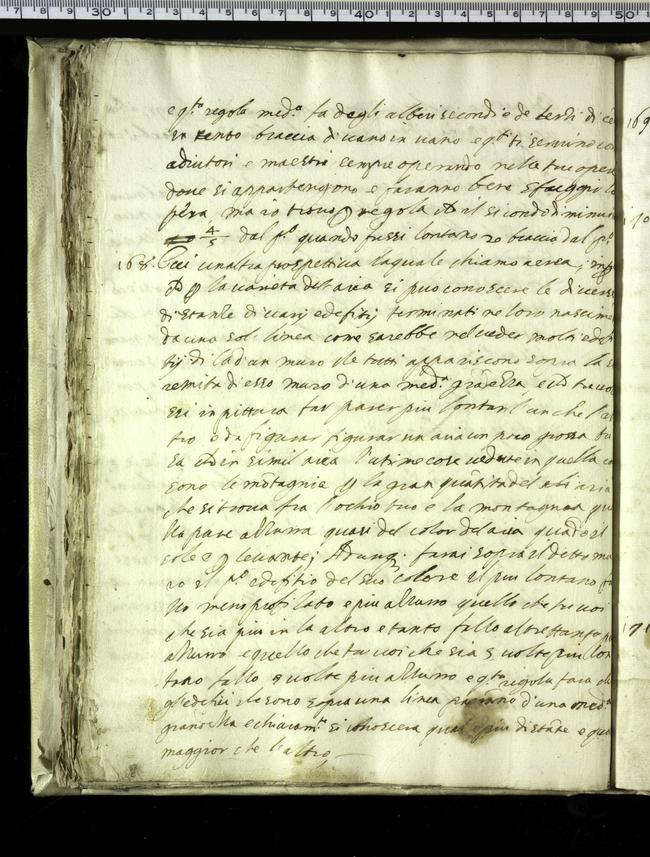 e q.ta regola med.a fa degli alberi secondi e de terzi di ce
in cento braccia di uano in uano e q.ti ti seruino con
adiutori e maestri sempre operando nelle tue opere
doue si appartengono e faranno bene sfuggir l
p̱era, ma io truouo ꝑ regola ch il secondo diminui
4/5 dal p.o quando fussi lontano 20 braccia dal p.o
168. Ecci un altra prospettiua la quale chiamo aerea, imp
ch ꝑ la uarieta dell aria si puo conoscere le diuerse
distantie di uarij edefitij terminati ne loro nascime
da una sol linea come sarebbe nel ueder molti edef
tij di la d un muro che tutti appariscono sopra la s
remita di esso muro d una med.a grandezza e ch tu uol
essi in pittura far parer piu lontan l un che l al
tro e da figurar un aria un poco grossa tu
sa ch in simil aria l ultime cose uedute in quella co
sono le motagnie ꝑ la gran quatita dell aria
che si troua fra l ochio tuo e la montagna qu
lla pare azzurra quasi del color del aria quado il
sole e ꝑ leuante; Adunq. farai sopra il detto mu
ro il p.o edefitio del suo colore il piu lontano fa
llo meno profilato e piu azzurro quello che tu uoi
che sia piu in la altro e tanto fallo altrettanto piu
azzurro e quello che tu uoi che sia 5 uolte piu lon
tano fallo 5 uolte piu azzurro e q.ta regola fara ch
gl edefitij che sono sopra una linea parrano d una med.a
grandezza e chiaram.te si conoscera qual e piu distate e qu
maggior che l altro,
169
170
171